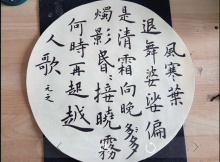 風寒葉
退舞婆娑偏
是清霜向晚多
燭影昏接曉霧
何時再起越
人歌